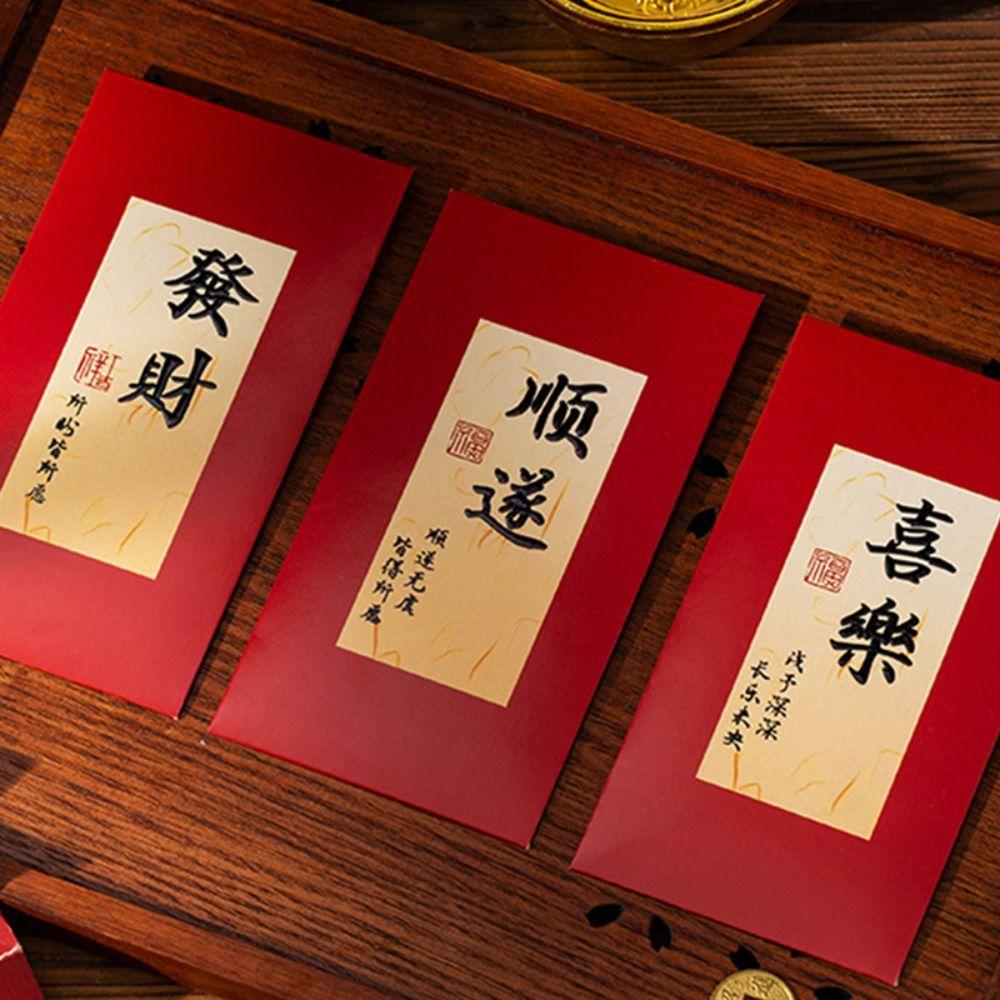 發財
所盼皆所愿
顺遂
福
顺遂无虞
皆得所愿
喜樂
福
浅予深深
长乐未央